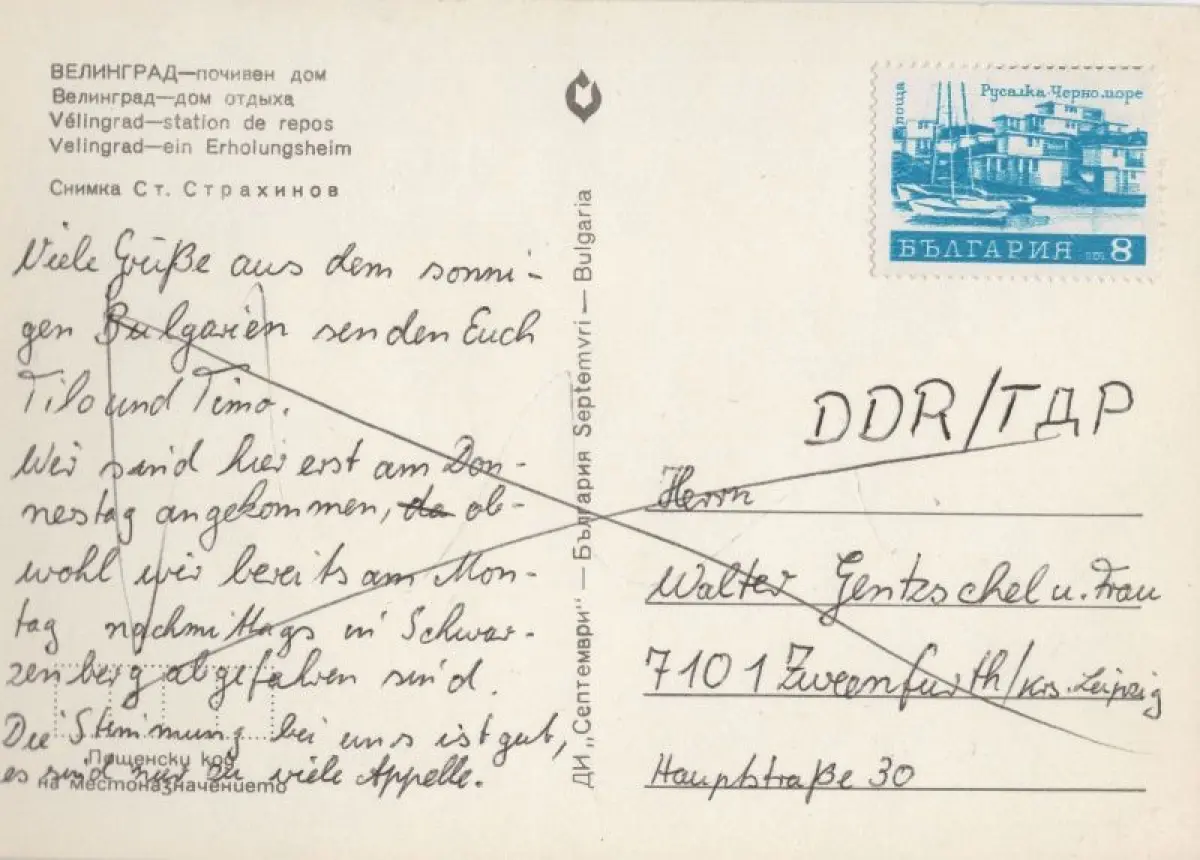 ВЕЛИНГРАД—почивен дом
Велинград—дом отдыха
Vélingrad—station de repos
Velingrad—ein Erholungsheim
Снимка Ст. Страхинов
Viele Grüße aus dem sonni-
gen Bulgarien senden Euch
Tilo und Timo.
Wir sind hier erst am Don-
nestag angekommen, da ob-
wohl wir bereits am Mon-
tag nachmittags in Schwar-
zenberg abgefahren sind.
Die Stimmung bei uns ist gut,
es sind nur zu viele Appelle.
Пощенски код
на местоназначението
ДИ „Септември" — България Septemvri — Bulgaria
поща
Русалка·Черно море
БЪЛГАРИЯ 8
DDR/ГДР
Herrn
Walter Gentzschel u. Frau
7101 Zweenfurth/Krs. Leipzig
Hauptstraße 30